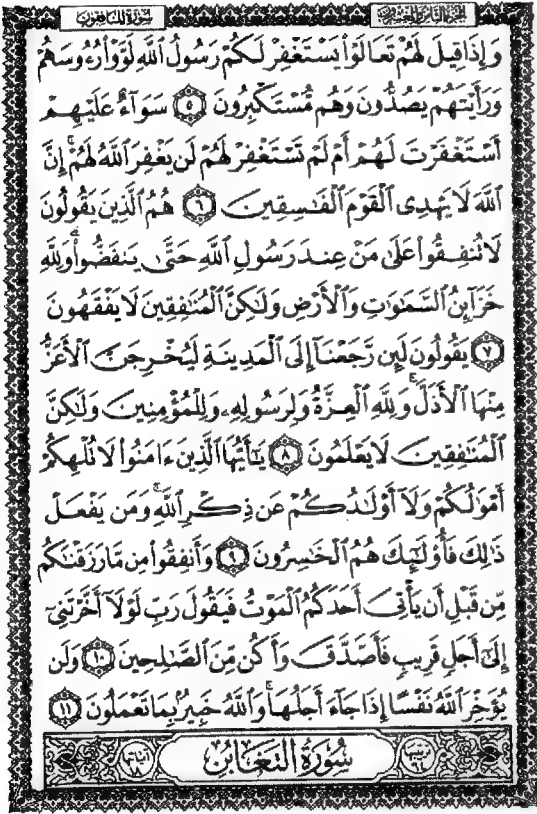 الجزء الثامن والعشرون سورة المنافقون
وَإِذَا قِيلَ لَهُمْ تَعَالَوْا۟ يَسْتَغْفِرْ لَكُمْ رَسُولُ ٱللَّهِ لَوَّوْا۟ رُءُوسَهُمْ
وَرَأَيْتَهُمْ يَصُدُّونَ وَهُم مُّسْتَكْبِرُونَ ٥ سَوَآءٌ عَلَيْهِمْ
أَسْتَغْفَرْتَ لَهُمْ أَمْ لَمْ تَسْتَغْفِرْ لَهُمْ لَن يَغْفِرَ ٱللَّهُ لَهُمْ ۚ إِنَّ
ٱللَّهَ لَا يَهْدِى ٱلْقَوْمَ ٱلْفَـٰسِقِينَ ٦ هُمُ ٱلَّذِينَ يَقُولُونَ
لَا تُنفِقُوا۟ عَلَىٰ مَنْ عِندَ رَسُولِ ٱللَّهِ حَتَّىٰ يَنفَضُّوا۟ ۗ وَلِلَّهِ
خَزَآئِنُ ٱلسَّمَـٰوَٰتِ وَٱلْأَرْضِ وَلَـٰكِنَّ ٱلْمُنَـٰفِقِينَ لَا يَفْقَهُونَ
٧ يَقُولُونَ لَئِن رَّجَعْنَآ إِلَى ٱلْمَدِينَةِ لَيُخْرِجَنَّ ٱلْأَعَزُّ
مِنْهَا ٱلْأَذَلَّ ۚ وَلِلَّهِ ٱلْعِزَّةُ وَلِرَسُولِهِۦ وَلِلْمُؤْمِنِينَ وَلَـٰكِنَّ
ٱلْمُنَـٰفِقِينَ لَا يَعْلَمُونَ ٨ يَـٰٓأَيُّهَا ٱلَّذِينَ ءَامَنُوا۟ لَا تُلْهِكُمْ
أَمْوَٰلُكُمْ وَلَآ أَوْلَـٰدُكُمْ عَن ذِكْرِ ٱللَّهِ ۚ وَمَن يَفْعَلْ
ذَٰلِكَ فَأُو۟لَـٰٓئِكَ هُمُ ٱلْخَـٰسِرُونَ ٩ وَأَنفِقُوا۟ مِن مَّا رَزَقْنَـٰكُم
مِّن قَبْلِ أَن يَأْتِىَ أَحَدَكُمُ ٱلْمَوْتُ فَيَقُولَ رَبِّ لَوْلَآ أَخَّرْتَنِىٓ
إِلَىٰٓ أَجَلٍ قَرِيبٍ فَأَصَّدَّقَ وَأَكُن مِّنَ ٱلصَّـٰلِحِينَ ١٠ وَلَن
يُؤَخِّرَ ٱللَّهُ نَفْسًا إِذَا جَآءَ أَجَلُهَا ۚ وَٱللَّهُ خَبِيرٌۢ بِمَا تَعْمَلُونَ ١١
ترتيبها ٦٤ سُورَةُ التَّغَابُن آياتها ١٨